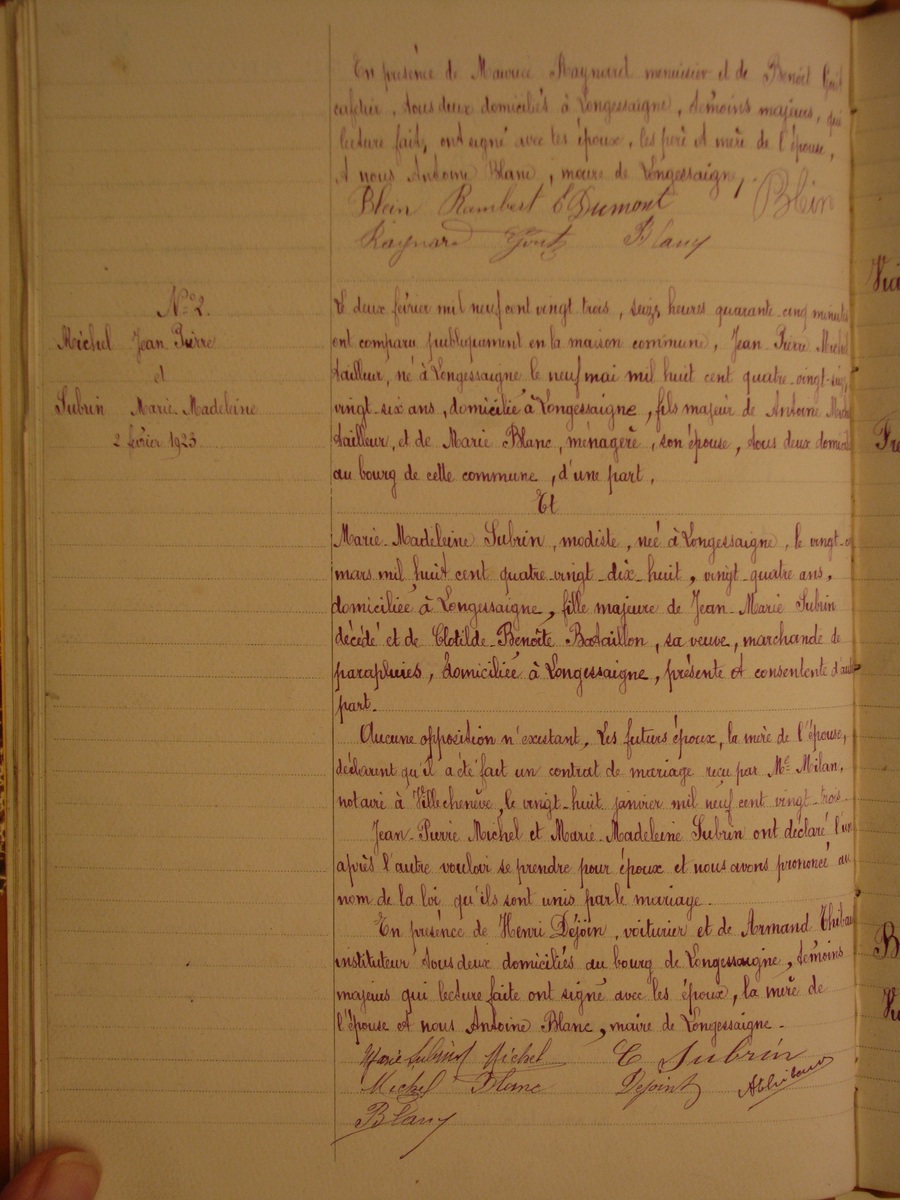 En présence de Maurice Raynard menuisier et de Benoît Gout
cafetier, tous deux domiciliés à Longessaigne, témoins majeurs, qui
lecture faite, ont signé avec les époux, les père et mère de l'épouse,
et nous Antoine Blanc, maire de Longessaigne,
Blein Rambert C Dumont Blein
Raynard Gout Blanc
N° 2.
Michel Jean Pierre
et
Subrin Marie-Madeleine
2 février 1923
Le deux février mil neuf cent vingt trois, seize heures quarante cinq minutes
ont comparu publiquement en la maison commune, Jean Pierre Michel
tailleur, né à Longessaigne le neuf mai mil huit cent quatre-vingt-seize,
vingt-six ans, domicilié à Longessaigne, fils majeur de Antoine Michel
tailleur, et de Marie Blanc, ménagère, son épouse, tous deux domiciliés
au bourg de cette commune, d'une part,
Et
Marie-Madeleine Subrin, modiste, née à Longessaigne, le vingt-
mars mil huit cent quatre-vingt-dix-huit, vingt-quatre ans,
domiciliée à Longessaigne, fille majeure de Jean-Marie Subrin
décédé et de Clotilde-Benoîte Bataillon, sa veuve, marchande de
parapluies, domiciliée à Longessaigne, présente et consentente d'autre
part.
Aucune opposition n'existant, Les futurs époux, la mère de l'épouse,
déclarent qu'il a été fait un contrat de mariage reçu par Me Milan,
notaire à Villechenève, le vingt-huit janvier mil neuf cent vingt-trois.
Jean-Pierre Michel et Marie-Madeleine Subrin ont déclaré l'un
après l'autre vouloir se prendre pour époux et nous avons prononcé au
nom de la loi qu'ils sont unis par le mariage.
En présence de Henri Déjoin, voiturier et de Armand Thibaud
instituteur tous deux domiciliés au bourg de Longessaigne, témoins
majeurs qui lecture faite ont signé avec les époux, la mère de
l'épouse et nous Antoine Blanc, maire de Longessaigne.
Marie Subrin Michel C Subrin
Michel Blanc Dejoint AThibaud
Blanc